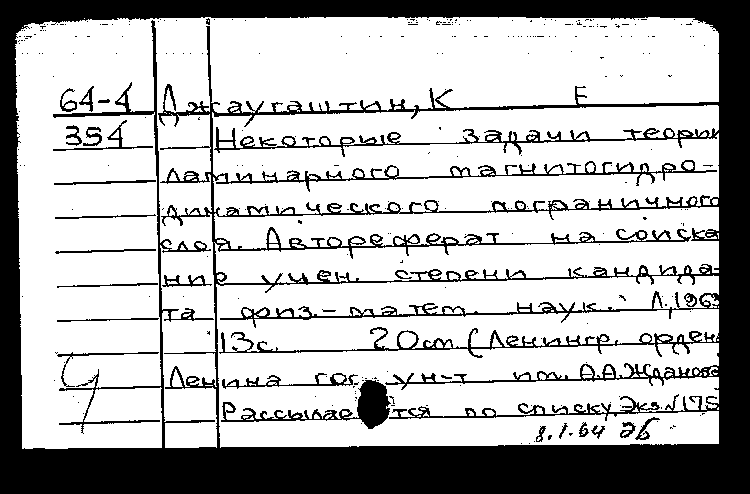 64-4 Джаугаштин, К Е
354 Некоторые задачи теории
ламинарного магнитогидро-
динамического пограничного
слоя. Автореферат на соиска
ние учен. степени кандида-
та физ.-матем. наук. Л., 1963
13с. 20см (Ленингр. орден
Ленина гос ун-т им. А.А.Жданова
Рассылается по списку. Экз.№175
8.1.64